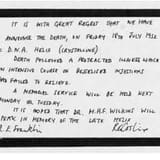 IT IS WITH GREAT REGRET THAT WE HAVE
ANNOUNCE THE DEATH, ON FRIDAY 18TH JULY 1952
D.N.A. HELIX (CRYSTALLINE)
DEATH FOLLOWED A PROTRACTED ILLNESS WHICH
AN INTENSIVE COURSE OF BESSELISED INJECTIONS
HAD FAILED TO RELIEVE.
A MEMORIAL SERVICE WILL BE HELD NEXT
MONDAY OR TUESDAY.
IT IS HOPED THAT DR. M.H.F. WILKINS WILL
SPEAK IN MEMORY OF THE LATE HELIX
R.E. Franklin